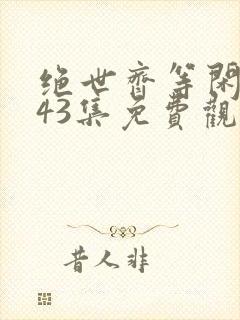 绝世齊等閑
43集免費觀
昔人非